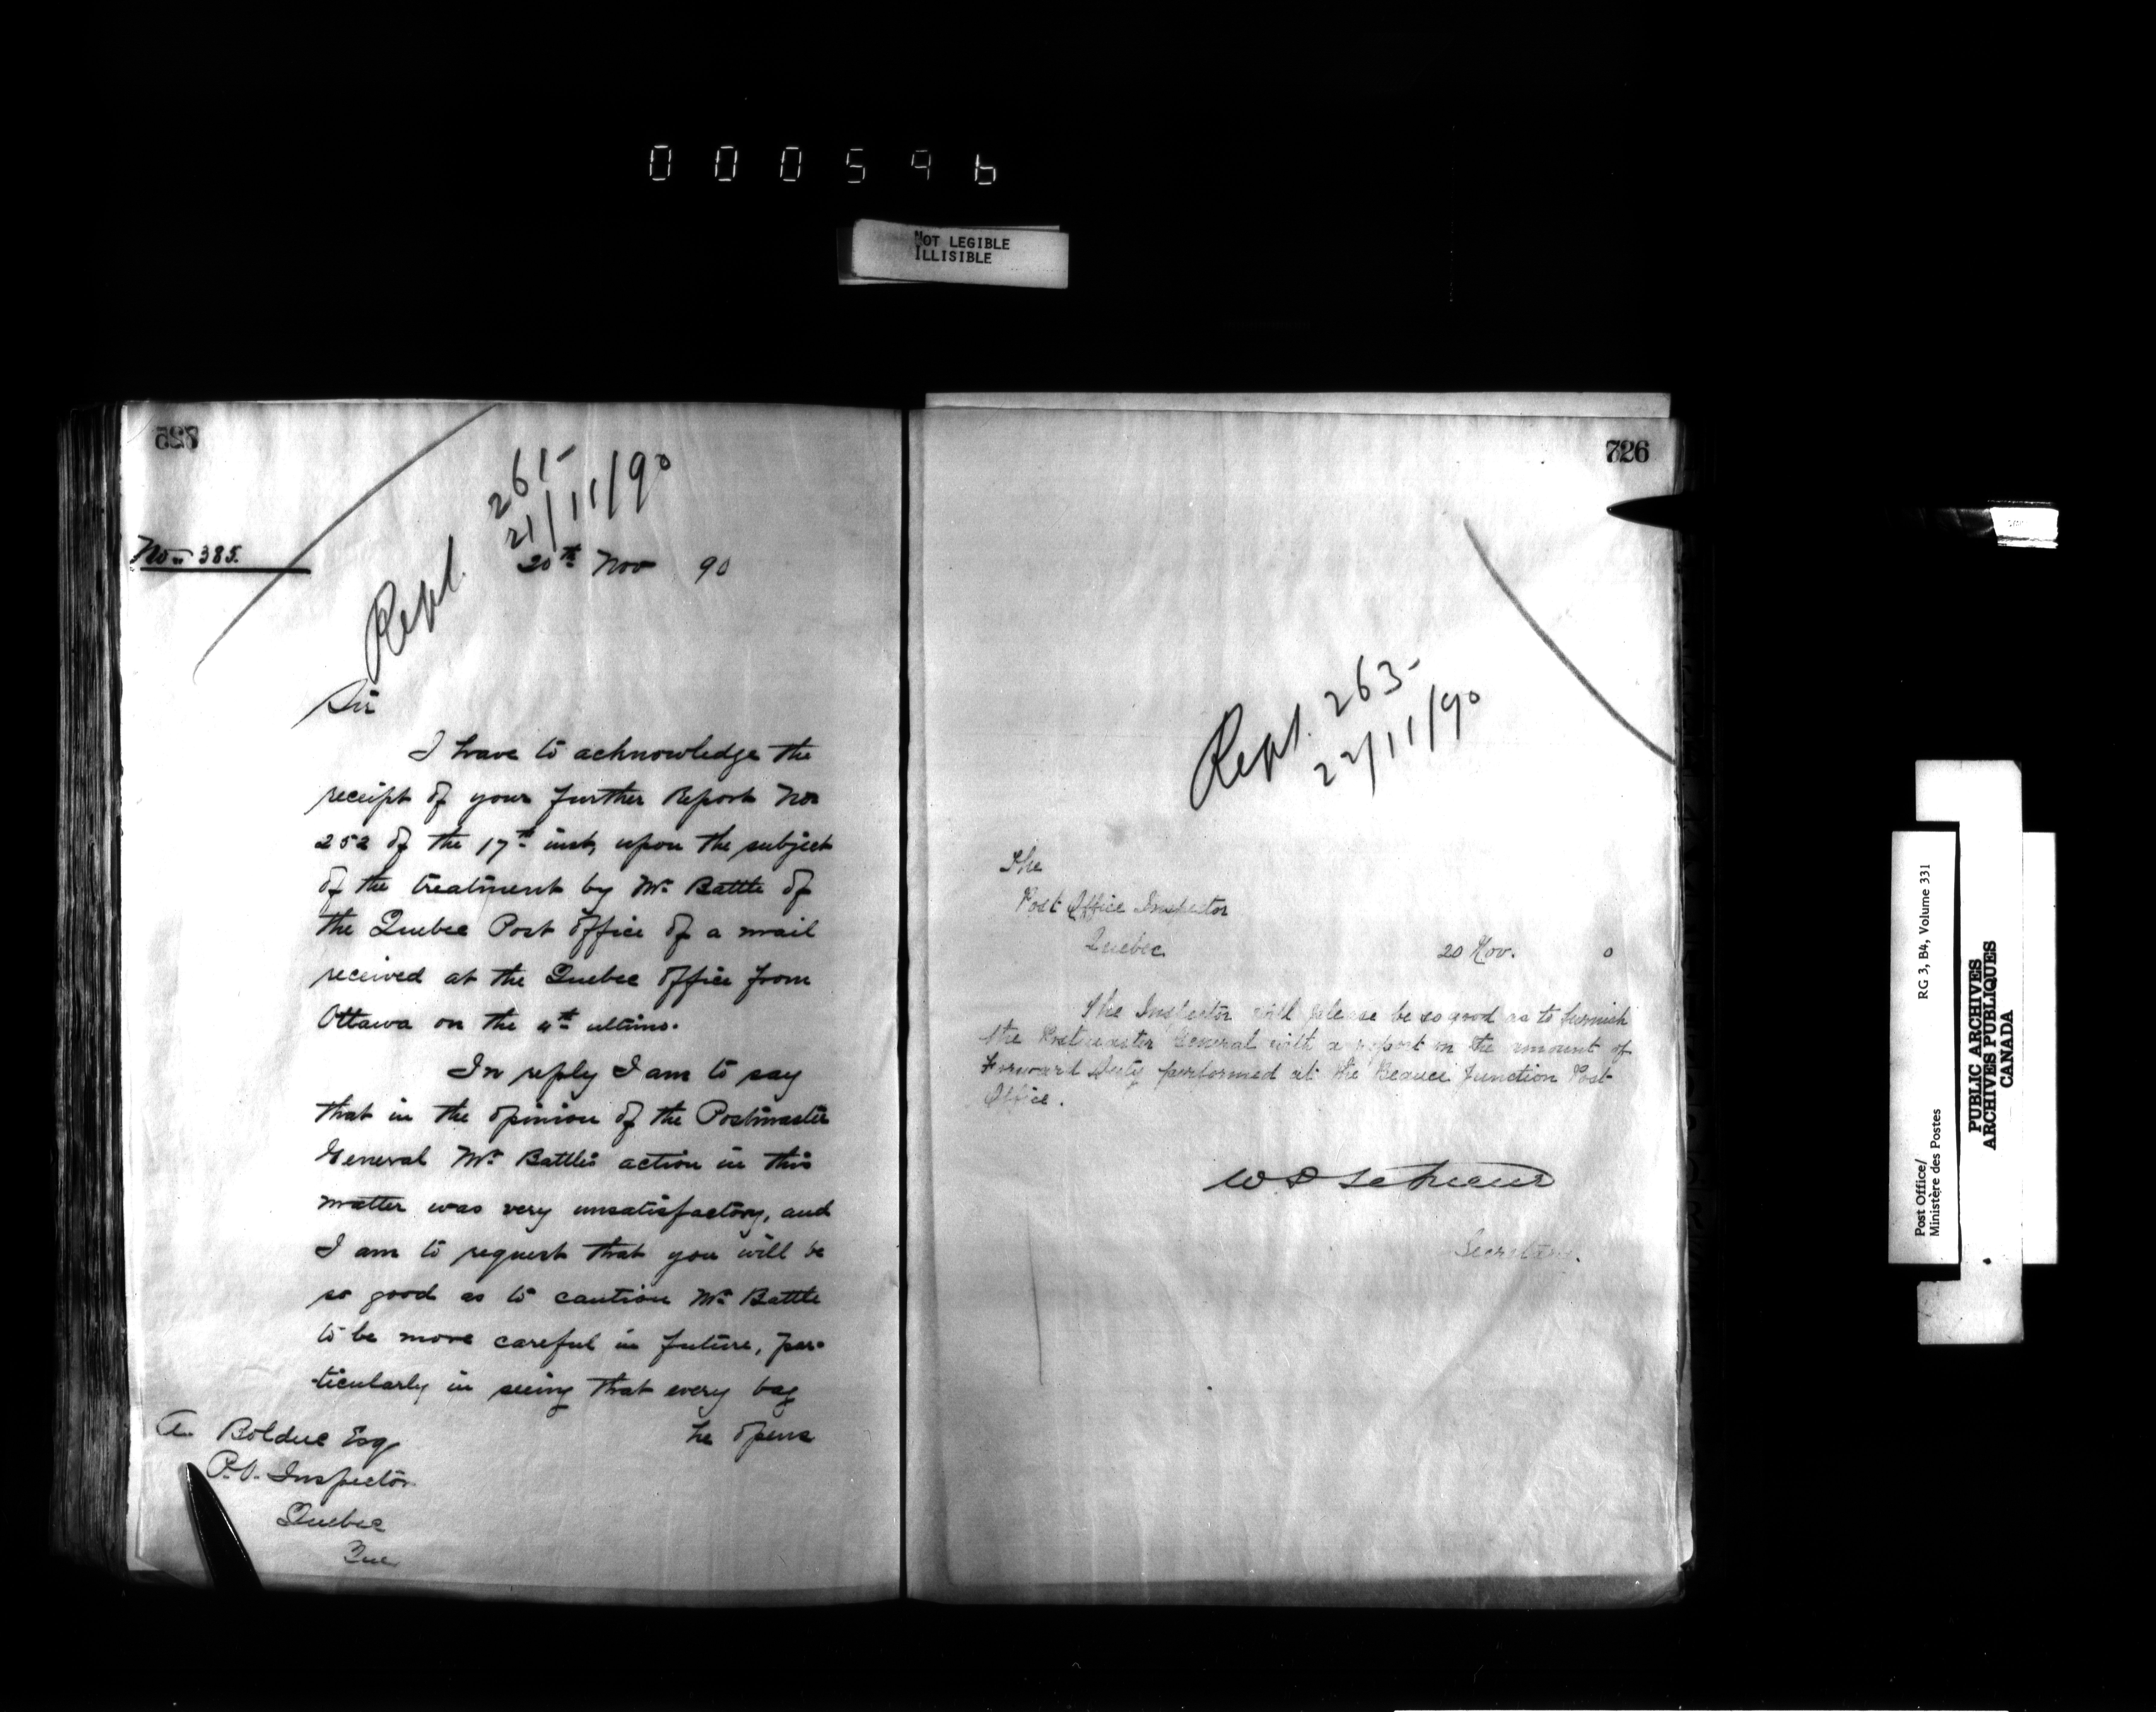 000596
NOT LEGIBLE
ILLISIBLE
725
261-
21/11/90
Repl.
No. 385.
20th Nov 90
Sir
I have to acknowledge the
receipt of your further Report No
252 of the 17th inst, upon the subject
of the treatment by Mr Battle of
the Quebec Post Office of a mail
received at the Quebec Office from
Ottawa on the 4th ultimo.
In reply I am to say
that in the opinion of the Postmaster
General Mr Battle's action in this
matter was very unsatisfactory, and
I am to request that you will be
so good as to caution Mr Battle
to be more careful in future, par-
-ticularly in seeing that every bag
he opens
A. Bolduc Esq
P.O. Inspector
Quebec
Que
726
Repl. 263-
22/11/90
The
Post Office Inspector
Quebec.
20 Nov. 0
The Inspector will please be so good as to furnish
the Postmaster General with a report on the amount of
Forward Duty performed at the Beauce Junction Post
Office.
Secretary.
Post Office/
Ministère des Postes
RG 3, B4, Volume 331
PUBLIC ARCHIVES
ARCHIVES PUBLIQUES
CANADA